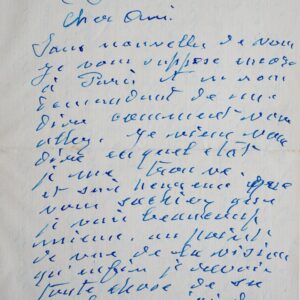 Cher Ami.
Sans nouvelles de vous
je vous suppose
à Paris et
demandant de me
dire comment vous
allez. Je viens vous
dire en quel état
je me trouve.
et suis heureuse que
vous sachiez que
je vais beaucoup
mieux. au point
de vue de la vision
qu'enfin je
toute chose de sa